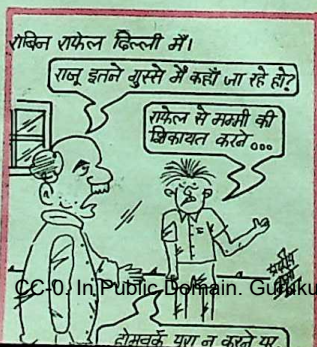 रॉबिन राफेल दिल्ली में।
राजू इतने गुस्से में कहाँ जा रहे हो?
राफेल से मम्मी की
शिकायत करने...
CC-0. In Public Domain. Guruku
होमवर्क पूरा न करने पर